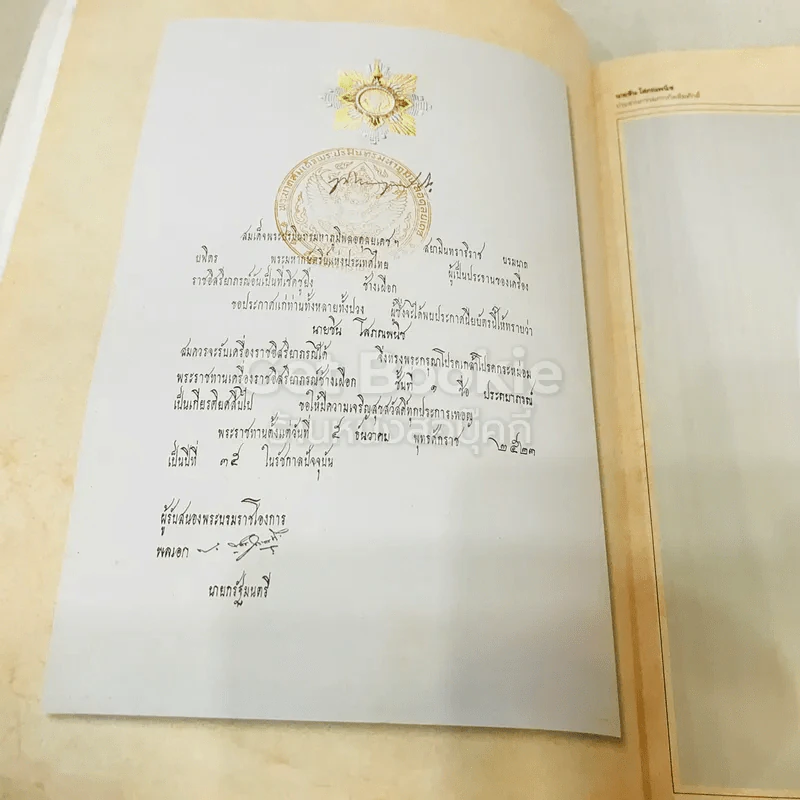 สมเด็จพระปรมินทรมหาภูมิพลอดุลยเดช ฯ สยามินทราธิราช บรมนาถ
บพิตร พระมหากษัตริย์แห่งประเทศไทย ผู้เป็นประธานของเครื่อง
ราชอิสริยาภรณ์อันเป็นที่เชิดชูยิ่ง ช้างเผือก
ขอประกาศแก่ท่านทั้งหลายทั้งปวง ผู้ซึ่งจะได้พบประกาศนียบัตรนี้ให้ทราบว่า
นายชิน โสภณพนิช
สมควรจะรับเครื่องราชอิสริยาภรณ์ได้ จึงทรงพระกรุณาโปรดเกล้าโปรดกระหม่อม
พระราชทานเครื่องราชอิสริยาภรณ์ช้างเผือก ชั้นที่ ๑ ชื่อ ประถมาภรณ์
เป็นเกียรติยศสืบไป ขอให้มีความเจริญสุขสวัสดิ์ทุกประการเทอญ
พระราชทานตั้งแต่วันที่ ๕ ธันวาคม พุทธศักราช ๒๕๒๓
เป็นปีที่ ๓๕ ในรัชกาลปัจจุบัน
ผู้รับสนองพระบรมราชโองการ
พลเอก
นายกรัฐมนตรี
นายชิน โสภณพนิช
Get Bookie
ร้านหนังสือบุ๊คกี้